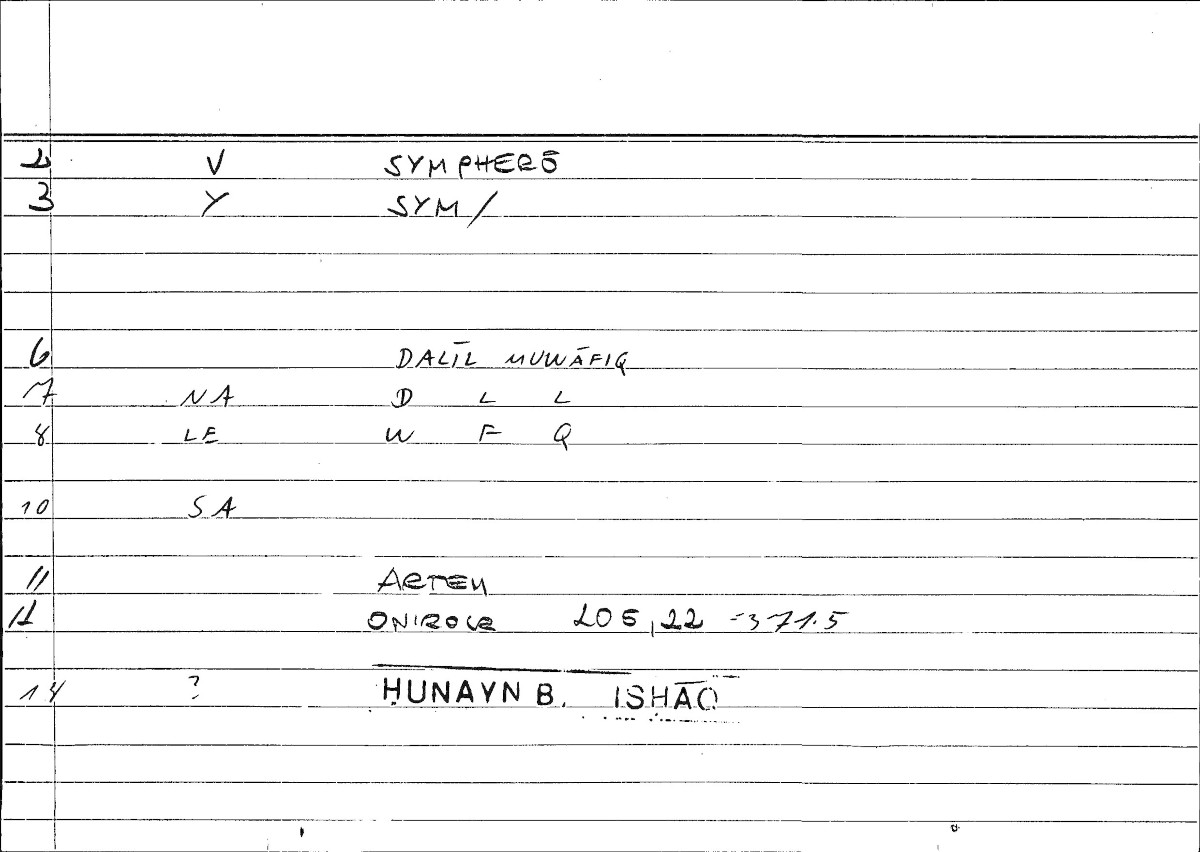 2 V SYMPHERŌ
3 Y SYM/
6 DALĪL MUWĀFIQ
7 NA D L L
8 LE W F Q
10 SA
11 ARTEM
12 ONIROCR 205,22 = 371.5
14 ? ḤUNAYN B. ISḤĀQ